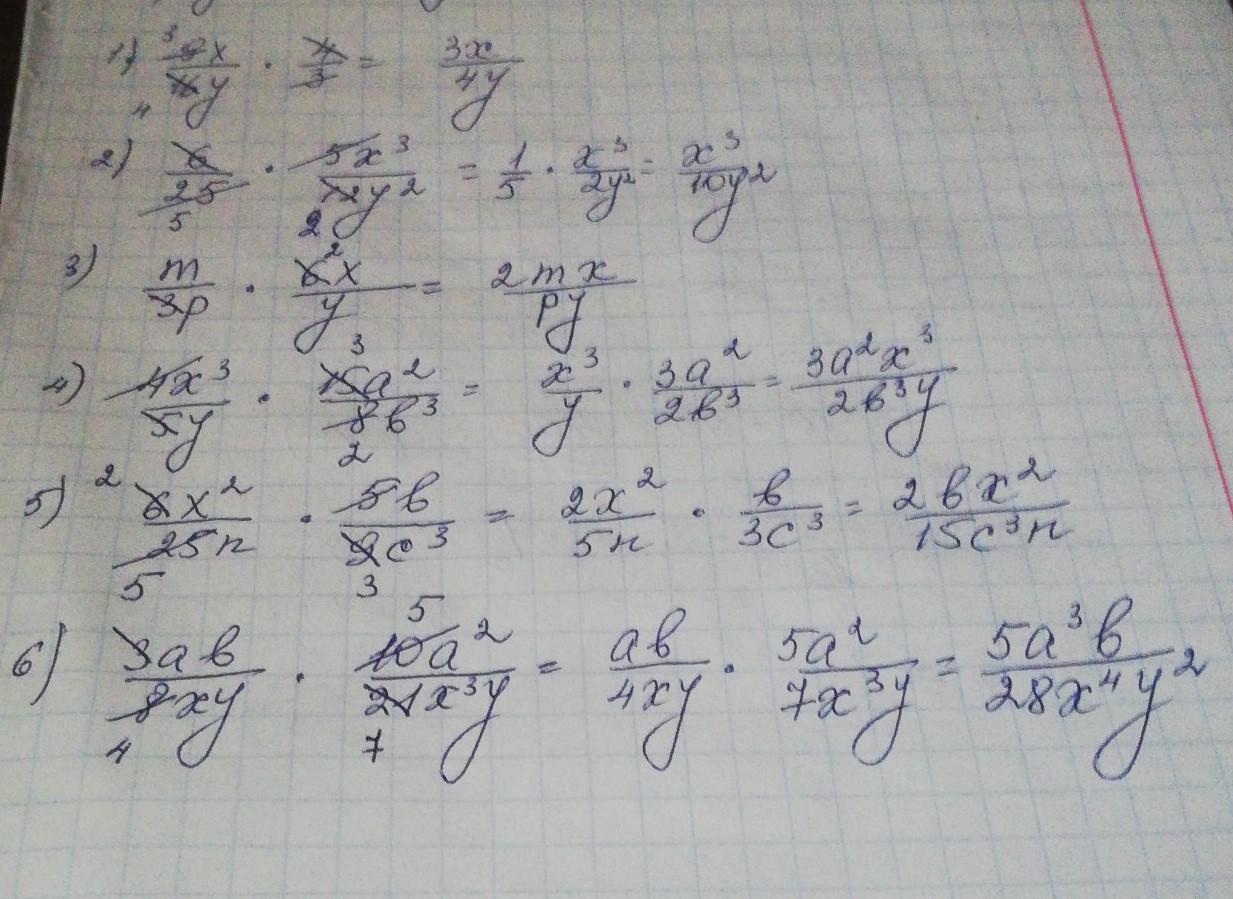 1) 3 9x/4y · 4/3 = 3x/4y
2) 6/25 5 · 5x³/12y² 2 = 1/5 · x³/2y² = x³/10y²
3) m/3p · 6²x/y = 2mx/py
4) 4x³/5y · 3 15a²/8b³ 2 = x³/y · 3a²/2b³ = 3a²x³/2b³y
5) 2 6x²/25n 5 · 5b/9c³ 3 = 2x²/5n · b/3c³ = 2bx²/15c³n
6) 3ab/8xy 4 · 5 10a²/21x³y 7 = ab/4xy · 5a²/7x³y = 5a³b/28x⁴y²